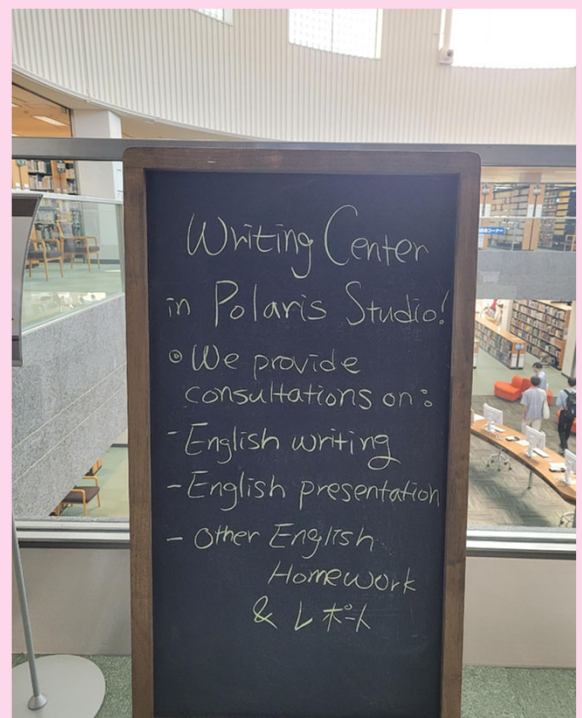 Writing Center
in Polaris Studio!
◎ We provide
consultations on:
- English writing
- English presentation
- Other English
Homework
& レポート